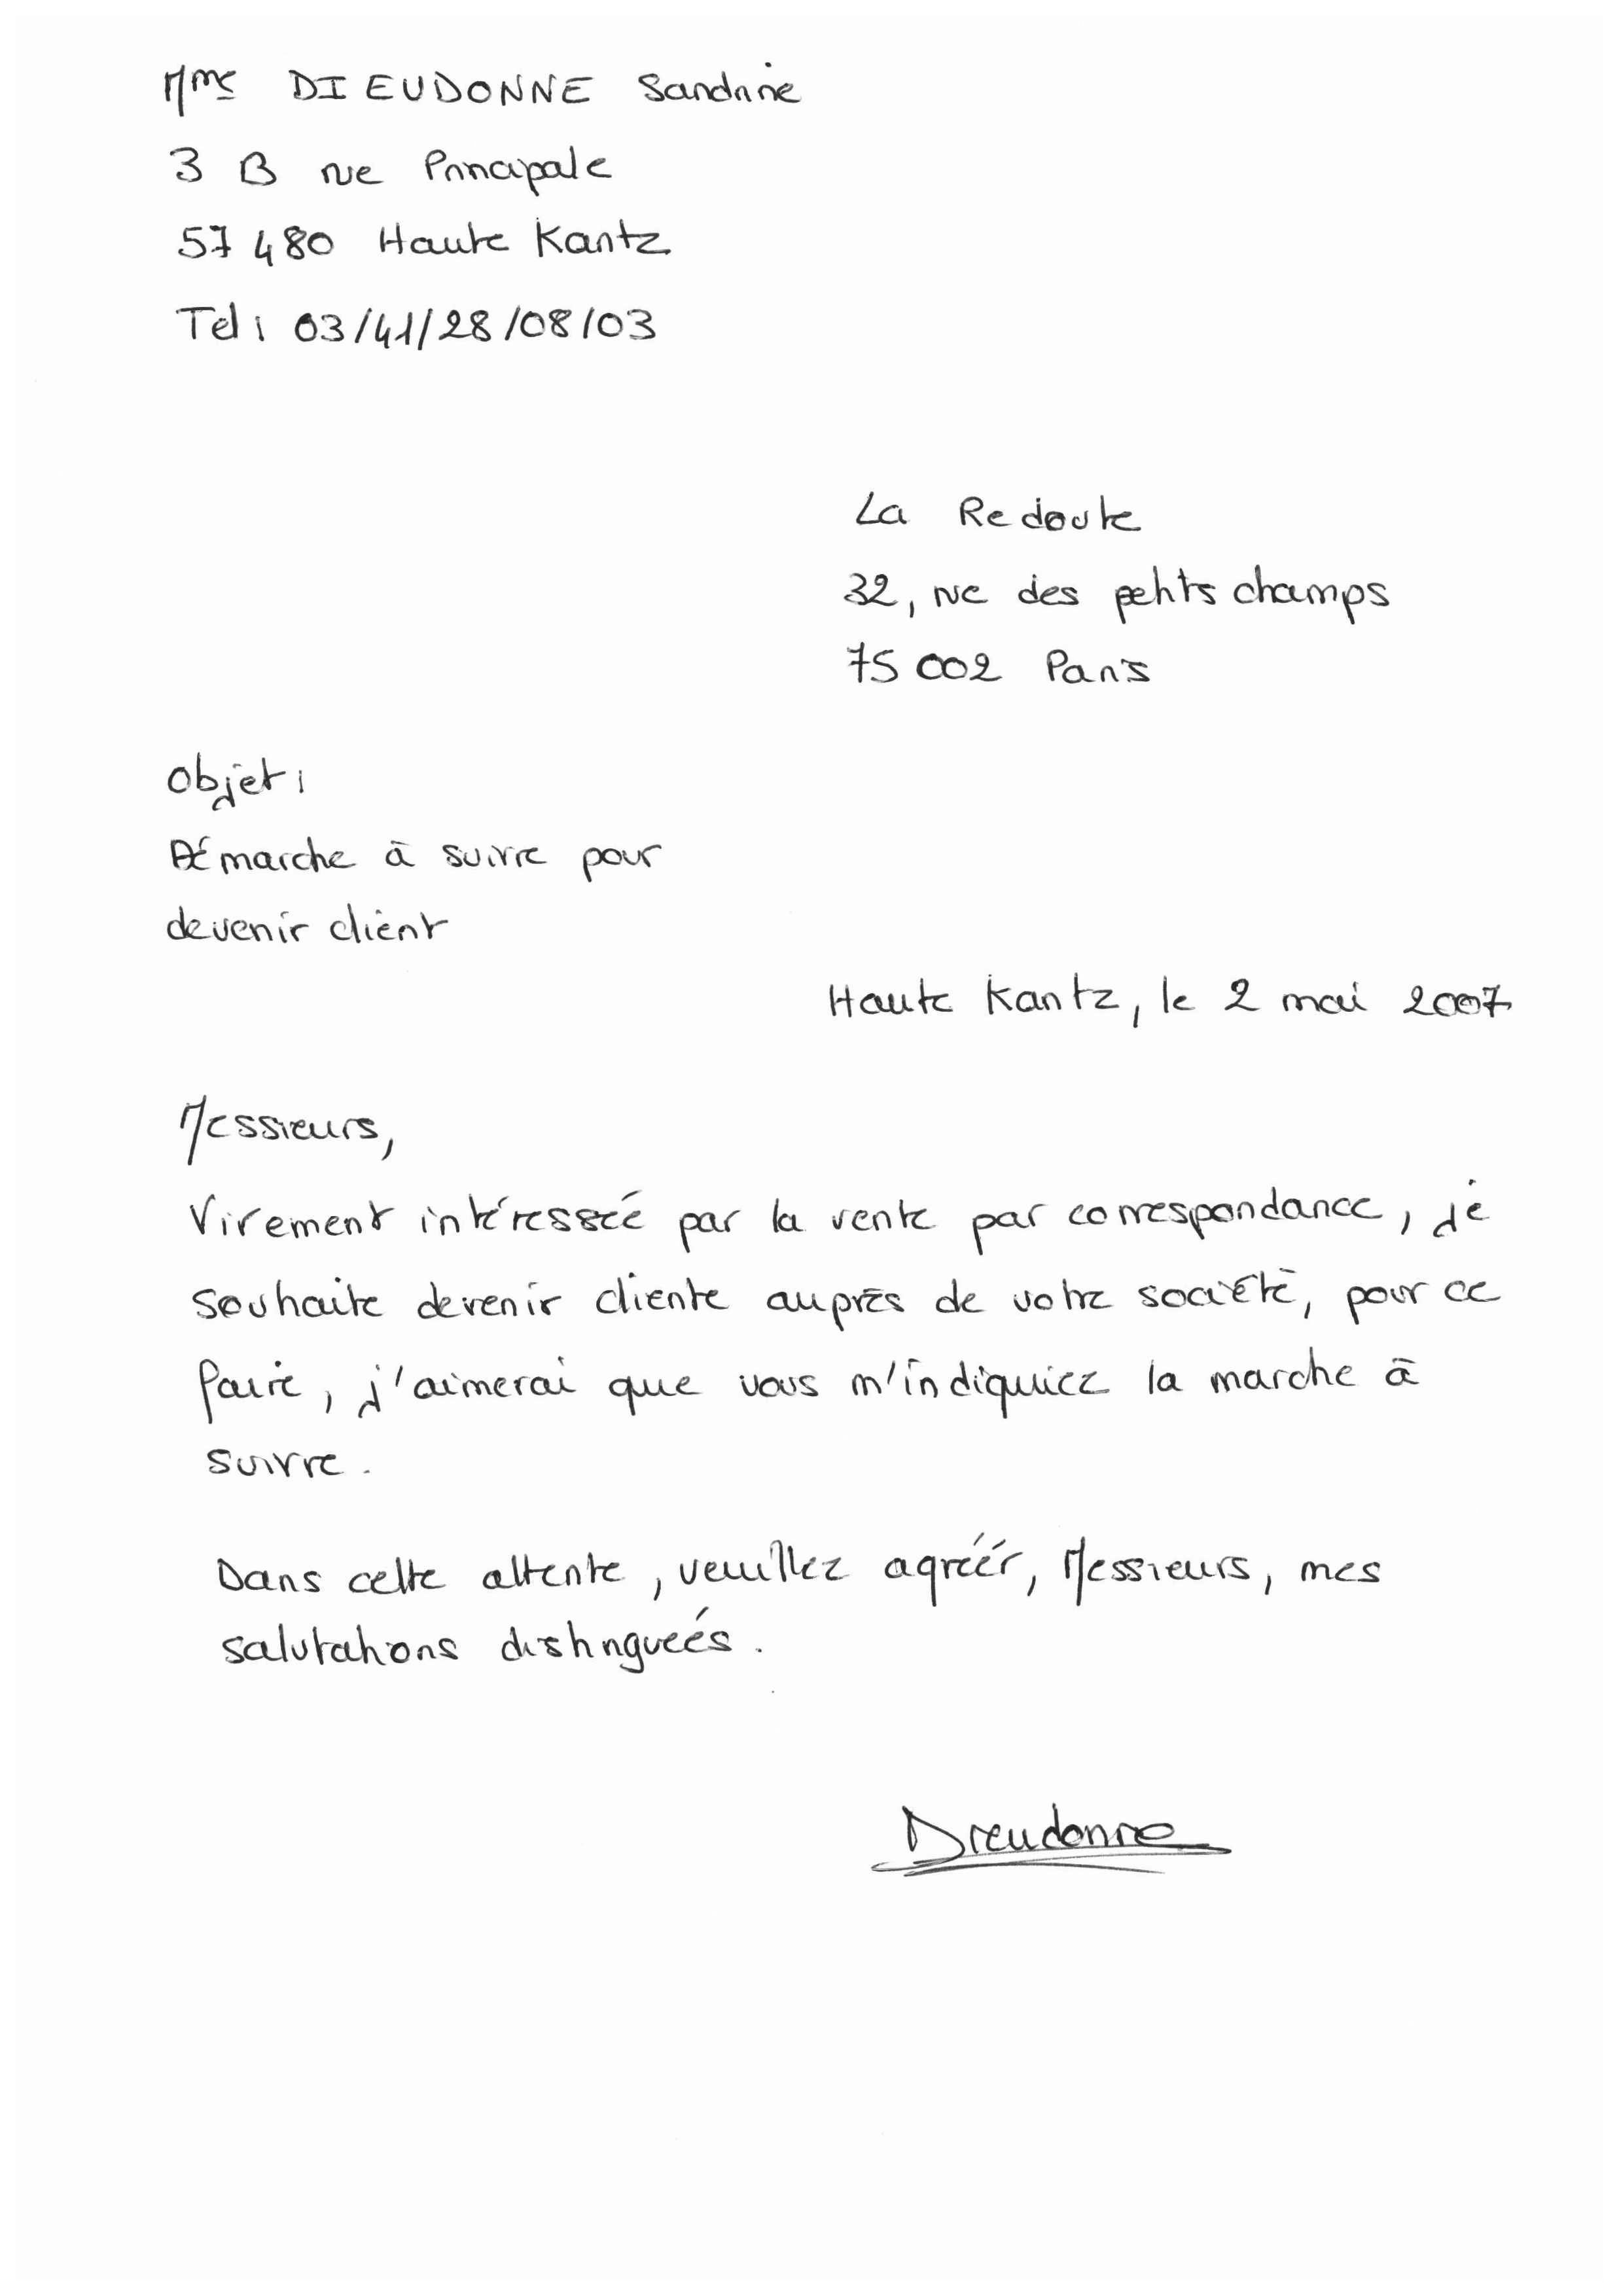 Mme DIEUDONNE Sandrine
3 B rue Principale
57 480 Haute Kantz
Tel : 03/41/28/08/03
La Redoute
32, rue des petits champs
75 002 Paris
Objet :
Démarche à suivre pour
devenir client
Haute Kantz, le 2 mai 2007
Messieurs,
Virement intéressée par la vente par correspondance, je
souhaite devenir cliente auprès de votre société, pour ce
faire, j'aimerai que vous m'indiquiez la marche à
suivre.
Dans cette attente, veuillez agréér, Messieurs, mes
salutations distinguées.
Dieudonne